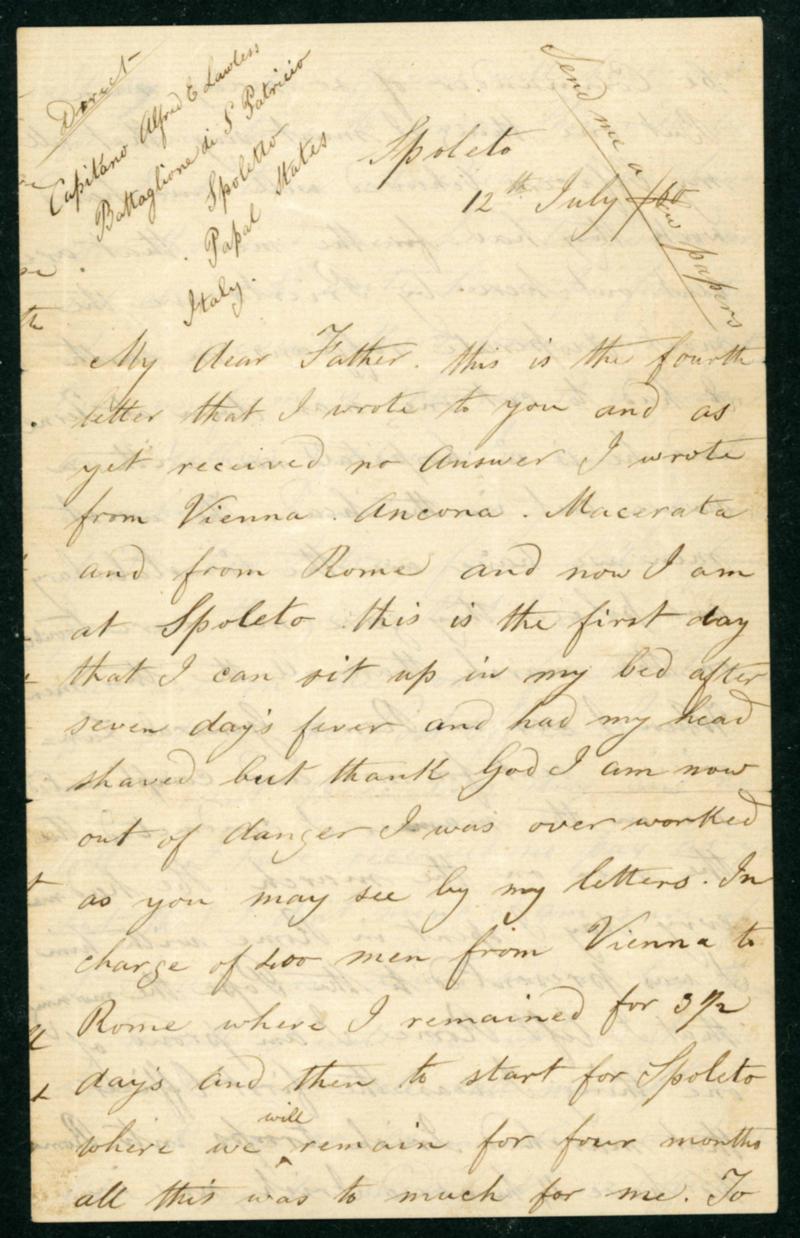 Direct
Capitano Alfred E Lawless
Battaglione di S Patricio
Spoletto
Papal States
Italy.
Send me a few papers
Spoleto
12th July /60
My dear Father. this is the fourth
letter that I wrote to you and as
yet received no Answer I wrote
from Vienna. Ancona. Macerata
and from Rome and now I am
at Spoleto this is the first day
that I can sit up in my bed after
seven day's fever and had my head
shaved but thank God I am now
out of danger I was over worked
as you may see by my letters. In
charge of 400 men from Vienna to
Rome where I remained for 3 1/2
day's and then to start for Spoleto
where we will remain for four months
all this was to much for me. To